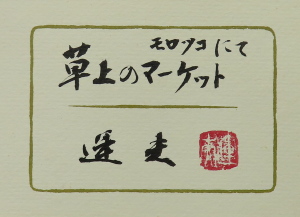 モロッコにて
草上のマーケット